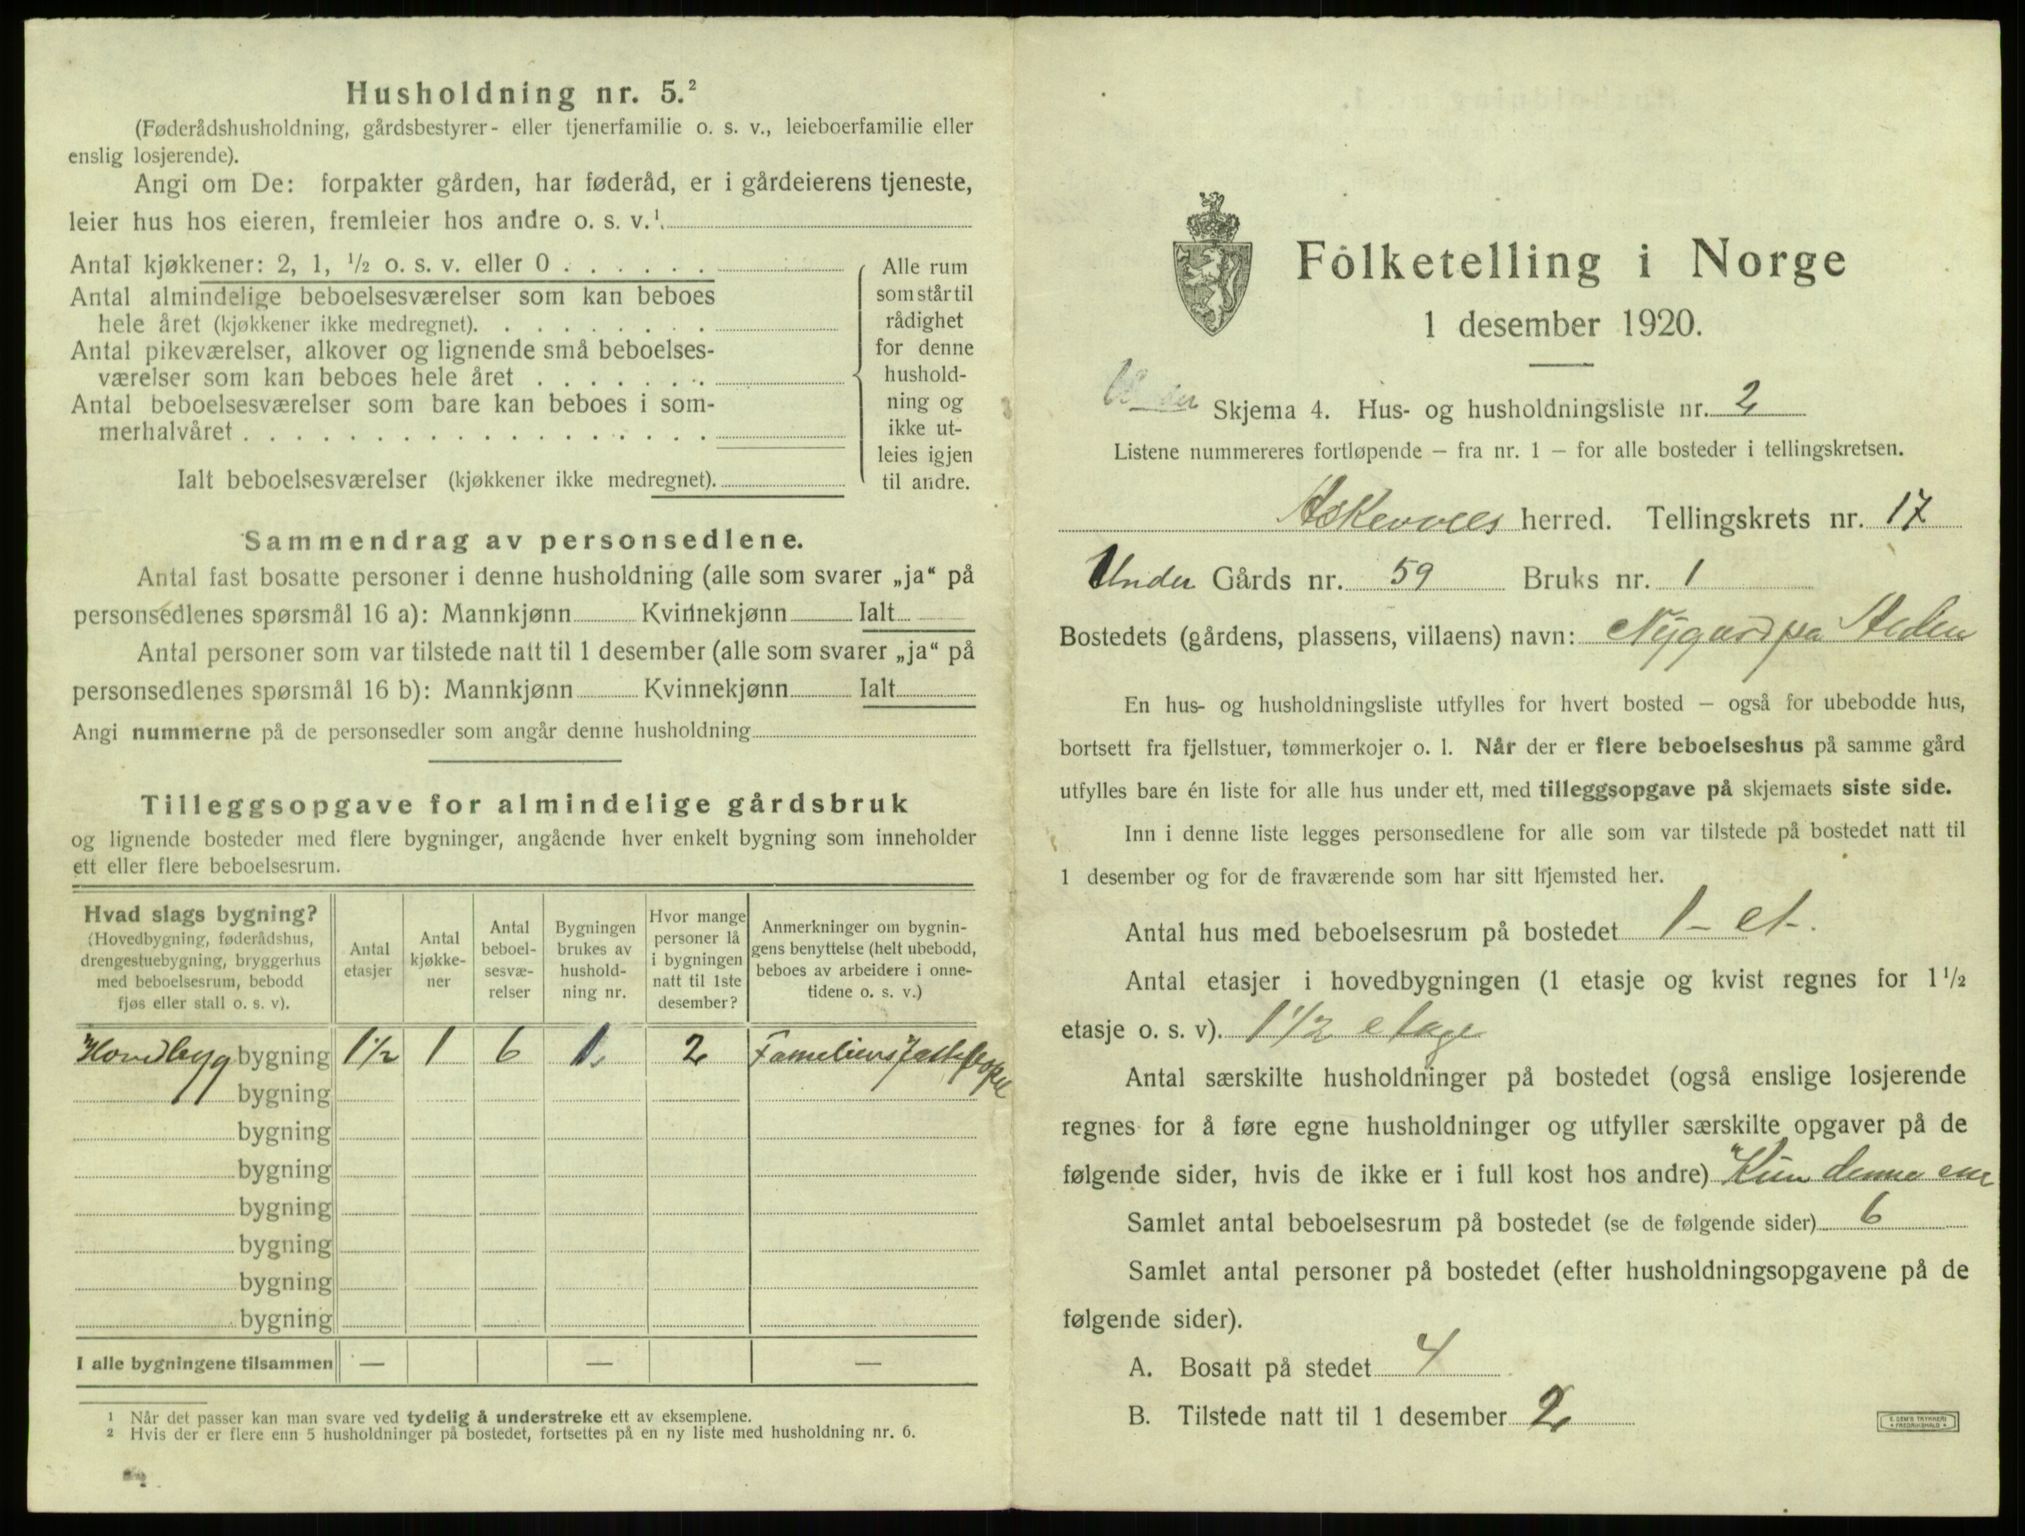 Husholdning nr. 5.²
(Føderådshusholdning, gårdsbestyrer- eller tjenerfamilie o. s. v., leieboerfamilie eller
enslig losjerende).
Angi om De: forpakter gården, har føderåd, er i gårdeierens tjeneste,
leier hus hos eieren, fremleier hos andre o. s. v.¹.
Antal kjøkkener: 2, 1, ½ o. s. v. eller 0
Antal almindelige beboelsesværelser som kan beboes
hele året (kjøkkener ikke medregnet).
Antal pikeværelser, alkover og lignende små beboelses-
værelser som kan beboes hele året
Antal beboelsesværelser som bare kan beboes i som-
merhalvåret
Ialt beboelsesværelser (kjøkkener ikke medregnet).
Alle rum
som står til
rådighet
for denne
hushold-
ning og
ikke ut-
leies igjen
til andre.
Sammendrag av personsedlene.
Antal fast bosatte personer i denne husholdning (alle som svarer „ja“ på
personsedlenes spørsmål 16 a): Mannkjønn Kvinnekjønn Ialt
Antal personer som var tilstede natt til 1 desember (alle som svarer „ja“ på
personsedlenes spørsmål 16 b): Mannkjønn Kvinnekjønn Ialt
Angi nummerne på de personsedler som angår denne husholdning
Tilleggsopgave for almindelige gårdsbruk
og lignende bosteder med flere bygninger, angående hver enkelt bygning som inneholder
ett eller flere beboelsesrum.
Hvad slags bygning?
(Hovedbygning, føderådshus,
drengestuebygning, bryggerhus
med beboelsesrum, bebodd
fjøs eller stall o. s. v).
Antal
etasjer
Antal
kjøkke-
ner
Antal
beboel-
sesvæ-
relser
Bygningen
brukes av
hushold-
ning nr.
Hvor mange
personer lå
i bygningen
natt til 1ste
desember?
Anmerkninger om bygnin-
gens benyttelse (helt ubebodd,
beboes av arbeidere i onne-
tidene o. s. v.)
Hovedbyg bygning 1½ 1 6 1. 2
bygning
bygning
bygning
bygning
bygning
bygning
bygning
I alle bygningene tilsammen — — —
¹ Når det passer kan man svare ved tydelig å understreke ett av eksemplene.
² Hvis der er flere enn 5 husholdninger på bostedet, fortsettes på en ny liste med husholdning nr. 6.
Folketelling i Norge
1 desember 1920.
Skjema 4. Hus- og husholdningsliste nr. 2
Listene nummereres fortløpende – fra nr. 1 – for alle bosteder i tellingskretsen.
Askevoll herred. Tellingskrets nr. 17
Under Gårds nr. 59 Bruks nr. 1
Bostedets (gårdens, plassens, villaens) navn: Nygaard pa
En hus- og husholdningsliste utfylles for hvert bosted – også for ubebodde hus,
bortsett fra fjellstuer, tømmerkojer o. l. Når der er flere beboelseshus på samme gård
utfylles bare én liste for alle hus under ett, med tilleggsopgave på skjemaets siste side.
Inn i denne liste legges personsedlene for alle som var tilstede på bostedet natt til
1 desember og for de fraværende som har sitt hjemsted her.
Antal hus med beboelsesrum på bostedet 1 – et.
Antal etasjer i hovedbygningen (1 etasje og kvist regnes for 1½
etasje o. s. v). 1½ etage
Antal særskilte husholdninger på bostedet (også enslige losjerende
regnes for å føre egne husholdninger og utfyller særskilte opgaver på de
følgende sider, hvis de ikke er i full kost hos andre) Kun denne ene
Samlet antal beboelsesrum på bostedet (se de følgende sider) 6
Samlet antal personer på bostedet (efter husholdningsopgavene på de
følgende sider).
A. Bosatt på stedet 4
B. Tilstede natt til 1 desember 2